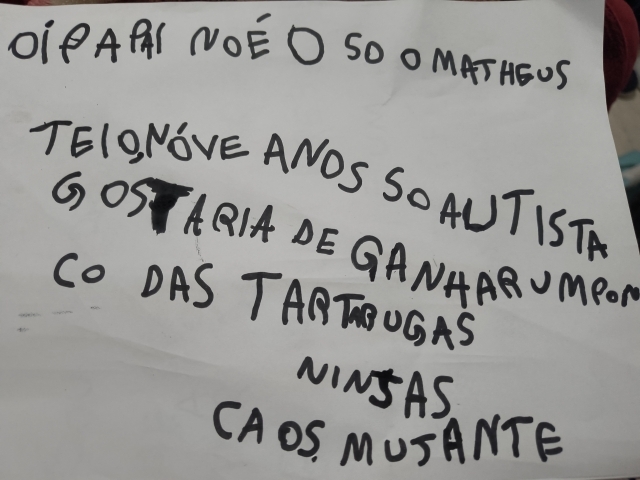 OÍ PAPAI NOÉ O SO O MATHEUS
TEIO NÓVE ANOS SO AUTISTA
GOSTARIA DE GANHAR UM PON
CO DAS TARTARUGAS
NINJAS
CAOS MUTANTE